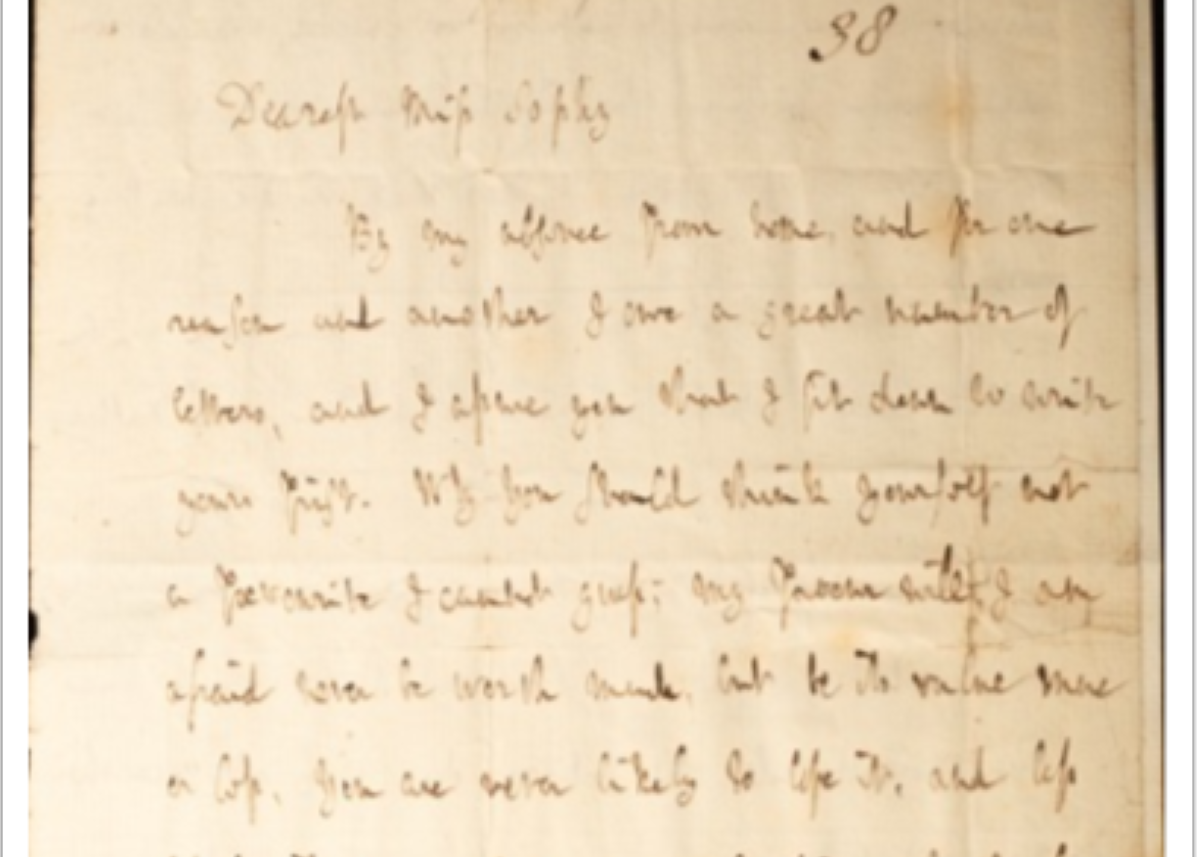 38
Dearest Miss Sophy
By my absence from home, and for one
reason and another I owe a great number of
letters, and I assure you that I sit down to write
yours first. Why you should think yourself not
a favourite I cannot guess; my favour will, I am
afraid never be worth much, but be its value more
or less, you are never likely to lose it, and less